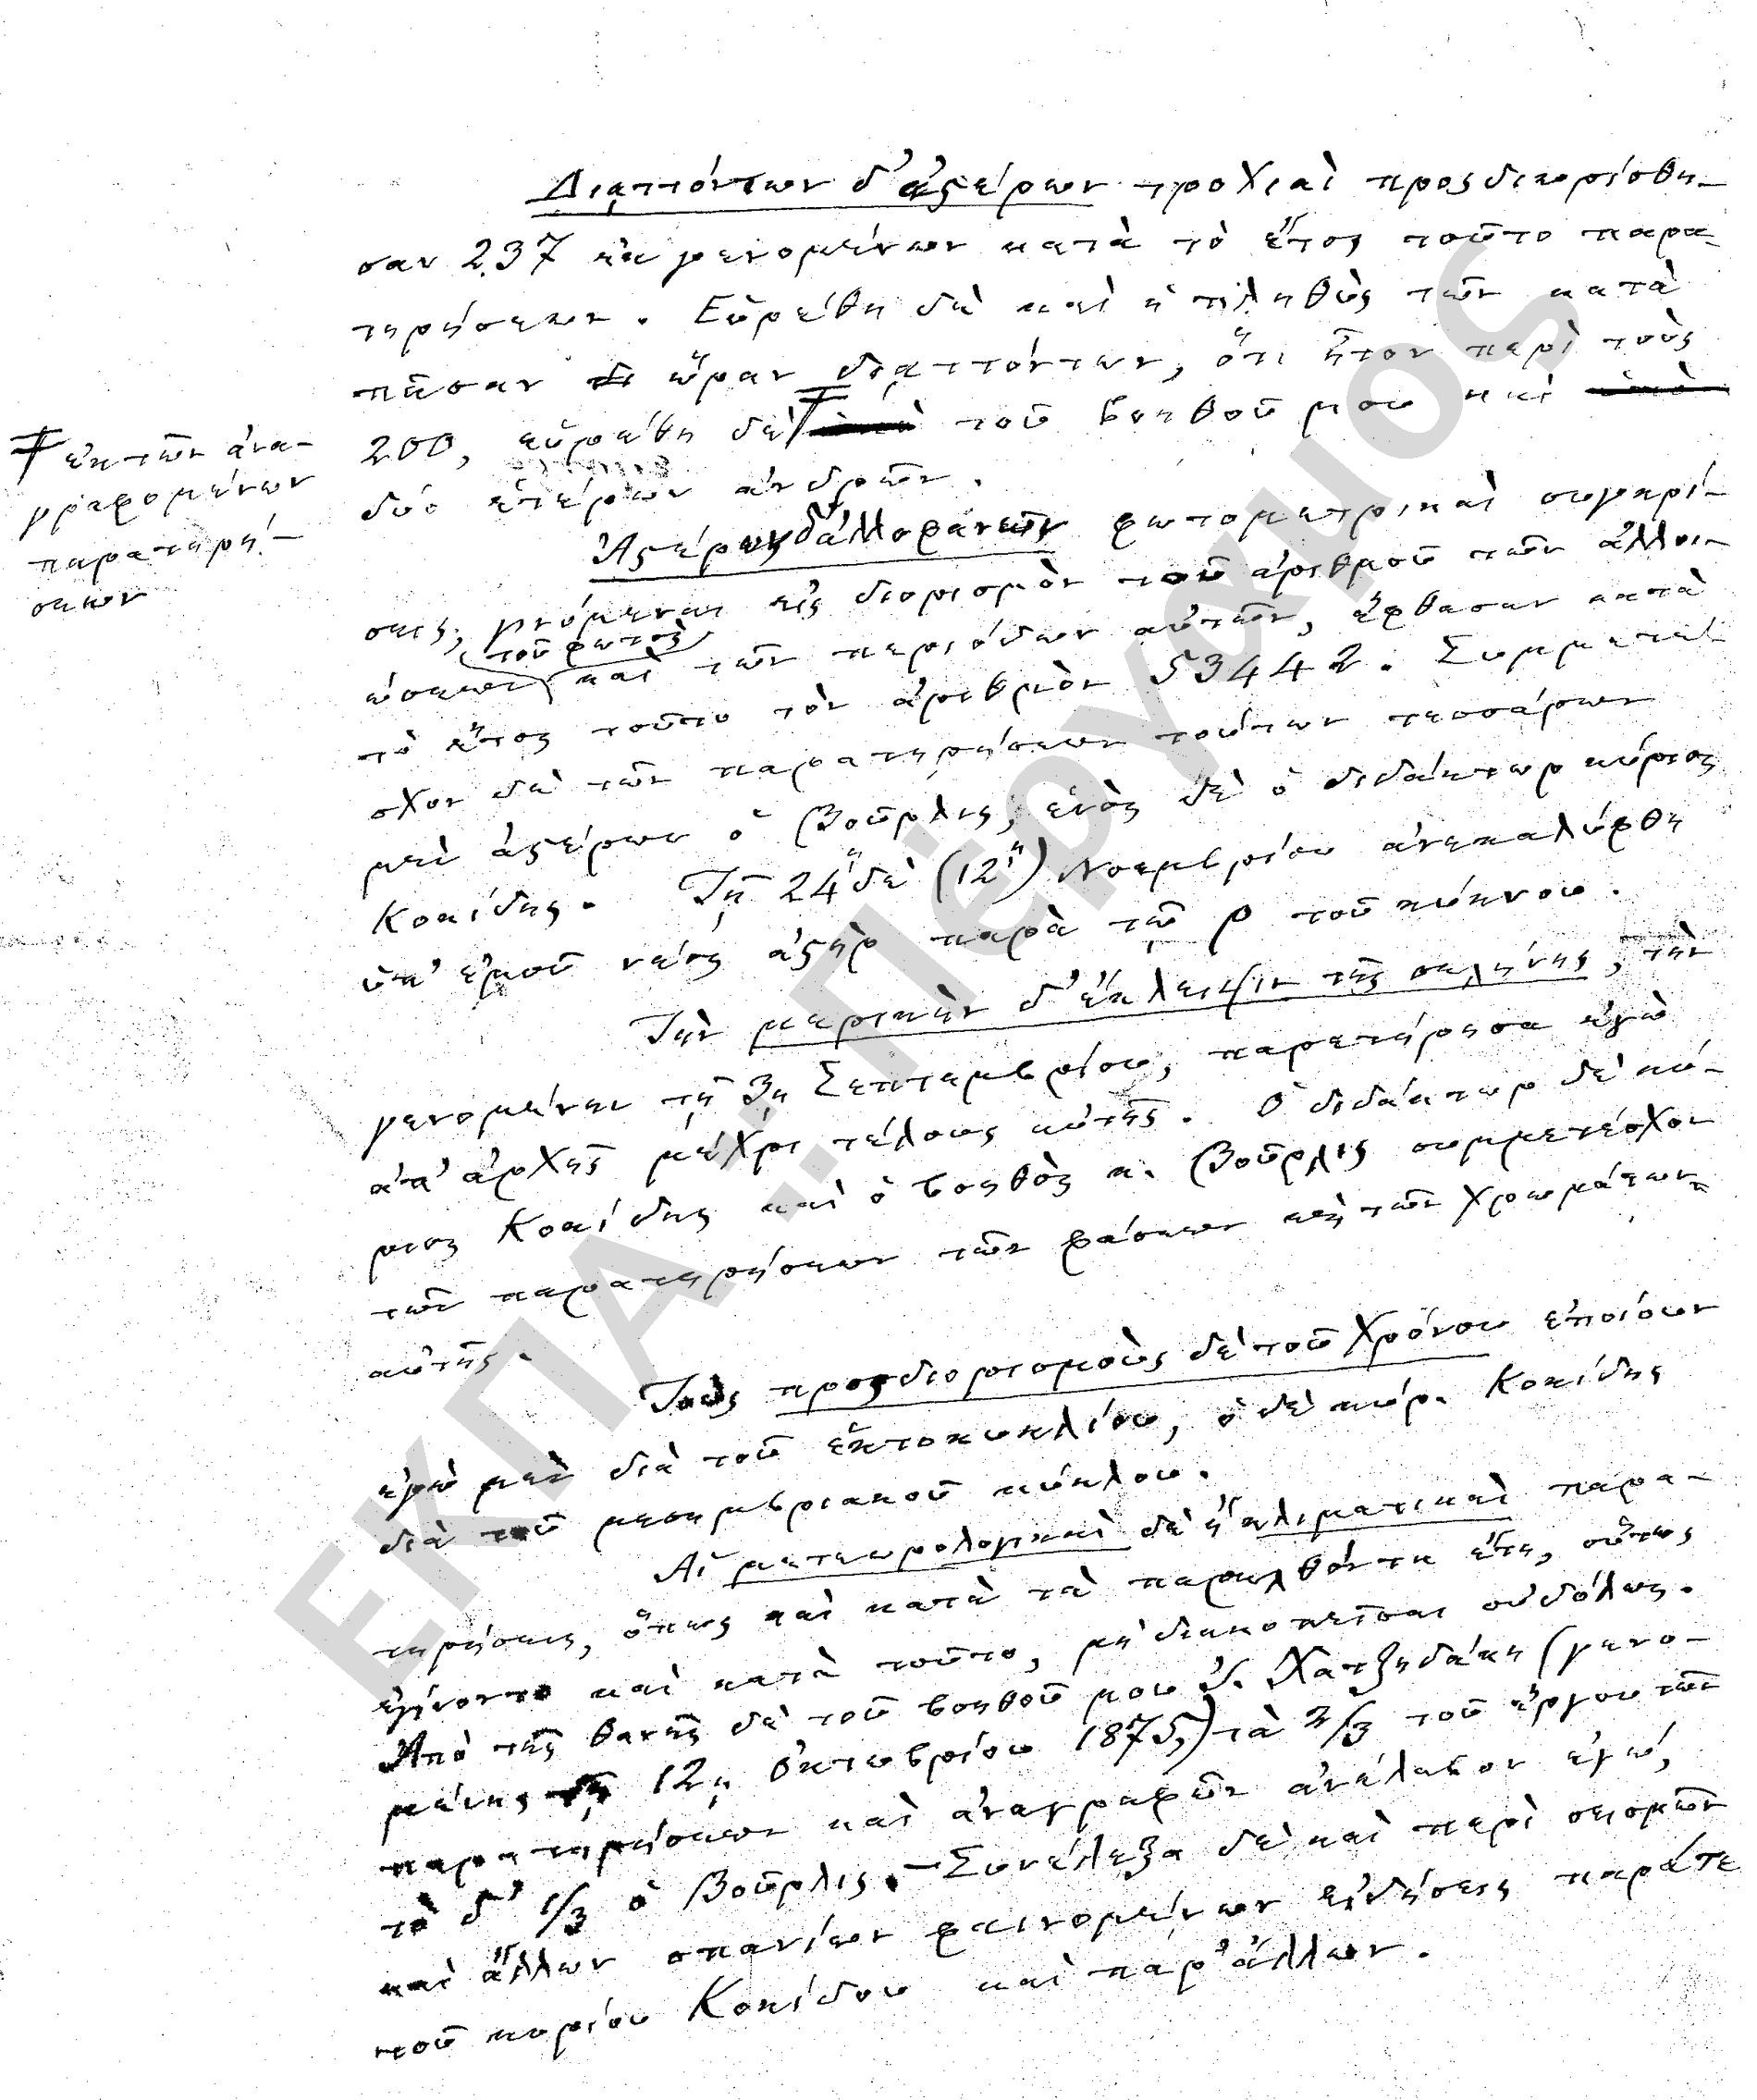 Διαττόντων δ' ἀστέρων τροχιαὶ προσδιωρίσθη-
σαν 237 ἐκ γενομένων κατὰ τὸ ἔτος τοῦτο παρα-
τηρήσεων. Εὑρέθη δὲ καὶ ἡ πληθὺς τῶν κατὰ
πᾶσαν ὥραν διαττόντων, ὅτι ἦτον περὶ τοὺς
200, εὑρέθη δὲ τοῦ βοηθοῦ μου καὶ
δύο ἑτέρων ἀνδρῶν.
ἐκ τῶν ἀνα-
γραφομένων
παρατηρή-
σεων
Ἀστέρων δ' ἀλλοφανῶν φωτομετρικαὶ συγκρί-
σεις, γινόμεναι εἰς διορισμὸν τοῦ ἀριθμοῦ τῶν ἀλλοι-
ώσεων τοῦ φωτὸς καὶ τῶν περιόδων αὐτῶν, ἔφθασαν κατὰ
τὸ ἔτος τοῦτο τὸν ἀριθμὸν 53442. Συμμετέ-
σχον δὲ τῶν παρατηρήσεων τούτων τεσσάρων
μὲν ἀστέρων ὁ Βοῦρλης, ἑνὸς δὲ ὁ διδάκτωρ κύριος
Κοκίδης. Τῇ 24ῃ δὲ (12ῃ) Νοεμβρίου ἀνεκαλύφθη
ὑπ' ἐμοῦ νέος ἀστὴρ παρὰ τῷ ρ τοῦ κύκνου.
Τὴν μερικὴν δ' ἔκλειψιν τῆς σελήνης, τὴν
γενομένην τῇ 3ῃ Σεπτεμβρίου, παρετήρησα ἐγὼ
ἀπ' ἀρχῆς μέχρι τέλους αὐτῆς. Ὁ διδάκτωρ δὲ κύ-
ριος Κοκίδης καὶ ὁ βοηθὸς κ. Βοῦρλης συμμετέσχον
τῶν παρατηρήσεων τῶν φάσεων καὶ τῶν χρωμάτων
αὐτῆς.
Τοὺς προσδιορισμοὺς δὲ τοῦ χρόνου ἐποίουν
ἐγὼ μὲν διὰ τοῦ ἑκτοκυκλίου, ὁ δὲ κύρ. Κοκίδης
διὰ τοῦ μεσημβριακοῦ κύκλου.
Αἱ μετεωρολογικαὶ δὲ ἢ κλιματικαὶ παρα-
τηρήσεις, ὅπως καὶ κατὰ τὰ παρελθόντα ἔτη, οὕτως
ἐγίνοντο καὶ κατὰ τοῦτο, μὴ διακοπεῖσαι οὐδόλως.
Ἀπὸ τῆς θανῆς δὲ τοῦ βοηθοῦ μου Ἰ. Χατζηδάκη (γενο-
μένης τῇ 12ῃ Ὀκτωβρίου 1875,) τὰ 2/3 τοῦ ἔργου τῶν
παρατηρήσεων καὶ ἀναγραφῶν ἀνέλαβον ἐγώ,
τὸ δ' 1/3 ὁ Βοῦρλης. – Συνέλεξα δὲ καὶ περὶ σεισμῶν
καὶ ἄλλων σπανίων φαινομένων εἰδήσεις παρά τε
τοῦ κυρίου Κοκίδου καὶ παρ' ἄλλων.
ΕΚΠΑ...Πέργαμος